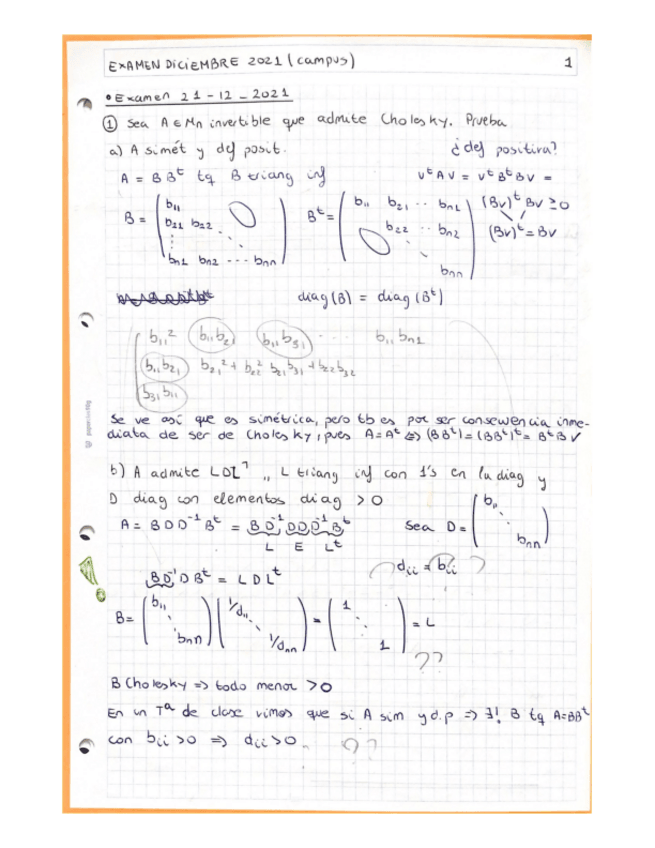 EXAMEN DICIEMBRE 2021 (campus) 1
• Examen 21-12-2021
① Sea A ∈ Mn invertible que admite Cholesky. Prueba
a) A simét y def posit. ¿def positiva?
A = B Bᵗ tq B triang inf vᵗAv = vᵗBᵗBv =
B = (b₁₁ b₂₁ b₂₂ ⋮ bn1 bn2 --- bnn) Bᵗ = (b₁₁ b₂₁ ·· bn1 b₂₂ ·· bn2 bnn) (Bv)ᵗ Bv ≥ 0
(Bv)ᵗ = Bv
diag(B) = diag(Bᵗ)
b₁₁² b₁₁b₂₁ b₁₁b₃₁ ··· b₁₁bn1
b₁₁b₂₁ b₂₁² + b₂₂² b₂₁b₃₁ + b₂₂b₃₂
b₃₁b₁₁
Se ve así que es simétrica, pero tb es por ser consecuencia inme-
diata de ser de Cholesky, pues A=Aᵗ ⇔ (BBᵗ) = (BBᵗ)ᵗ = BᵗB ✓
b) A admite LDLᵗ ,, L triang inf con 1's en la diag y
D diag con elementos diag > 0
A = BDD⁻¹Bᵗ = BD⁻¹DDD⁻¹Bᵗ Sea D = (b₁₁ ⋱ bnn)
L E Lᵗ
dii = bii ?
BD⁻¹DBᵗ = LDLᵗ
B = (b₁₁ ⋱ bnn) (1/d₁₁ ⋱ 1/dnn) = (1 ⋱ 1) = L
??
B Cholesky ⇒ todo menor > 0
En un Tª de clase vimos que si A sim y d.p ⇒ ∃! B tq A=BBᵗ
con bii > 0 ⇒ dii > 0. ??